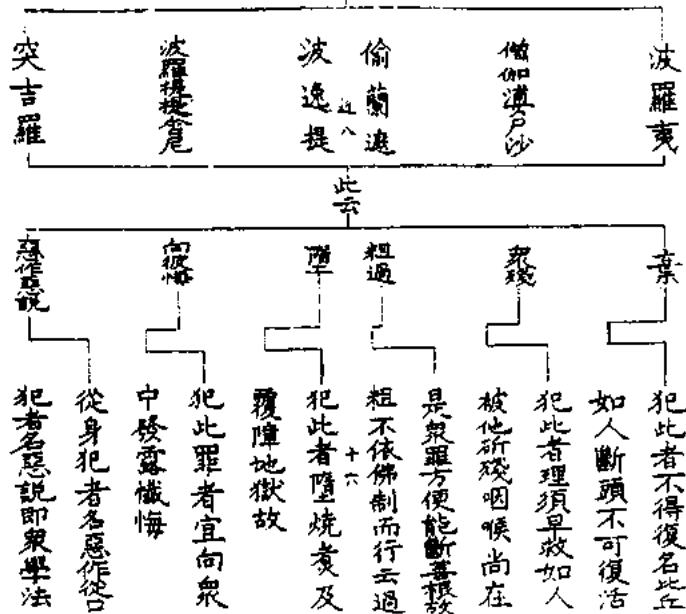 波羅夷
僧伽婆尸沙
偷蘭遮
波逸提
波羅提提舍尼
突吉羅
此云
棄
眾殘
粗過
墮
向彼悔
惡作惡說
犯此者不得復名比丘
如人斷頭不可復活
犯此者理須早救如人
被他斫殘咽喉尚在
是眾罪方便能斷善根故
粗不依佛制而行云過
犯此者墮燒煮及
覆障地獄故
十六
犯此罪者宜向眾
中發露懺悔
從身犯者名惡作從口
犯者名惡說即眾學法